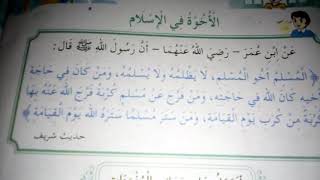 الأُخُوَّةُ فِي الْإِسْلَامِ
عَنْ ابْنِ عُمَرَ - رَضِيَ اللَّهُ عَنْهُمَا - أَنَّ رَسُولَ اللَّهِ ﷺ قَالَ:
﴿ الْمُسْلِمُ أَخُو الْمُسْلِمِ، لَا يَظْلِمُهُ وَلَا يُسْلِمُهُ، وَمَنْ كَانَ فِي حَاجَةِ
أَخِيهِ كَانَ اللَّهُ فِي حَاجَتِهِ، وَمَنْ فَرَّجَ عَنْ مُسْلِمٍ كُرْبَةً فَرَّجَ اللَّهُ عَنْهُ بِهَا
كُرْبَةً مِنْ كُرَبِ يَوْمِ الْقِيَامَةِ، وَمَنْ سَتَرَ مُسْلِمًا سَتَرَهُ اللَّهُ يَوْمَ الْقِيَامَةِ ﴾
حديث شريف